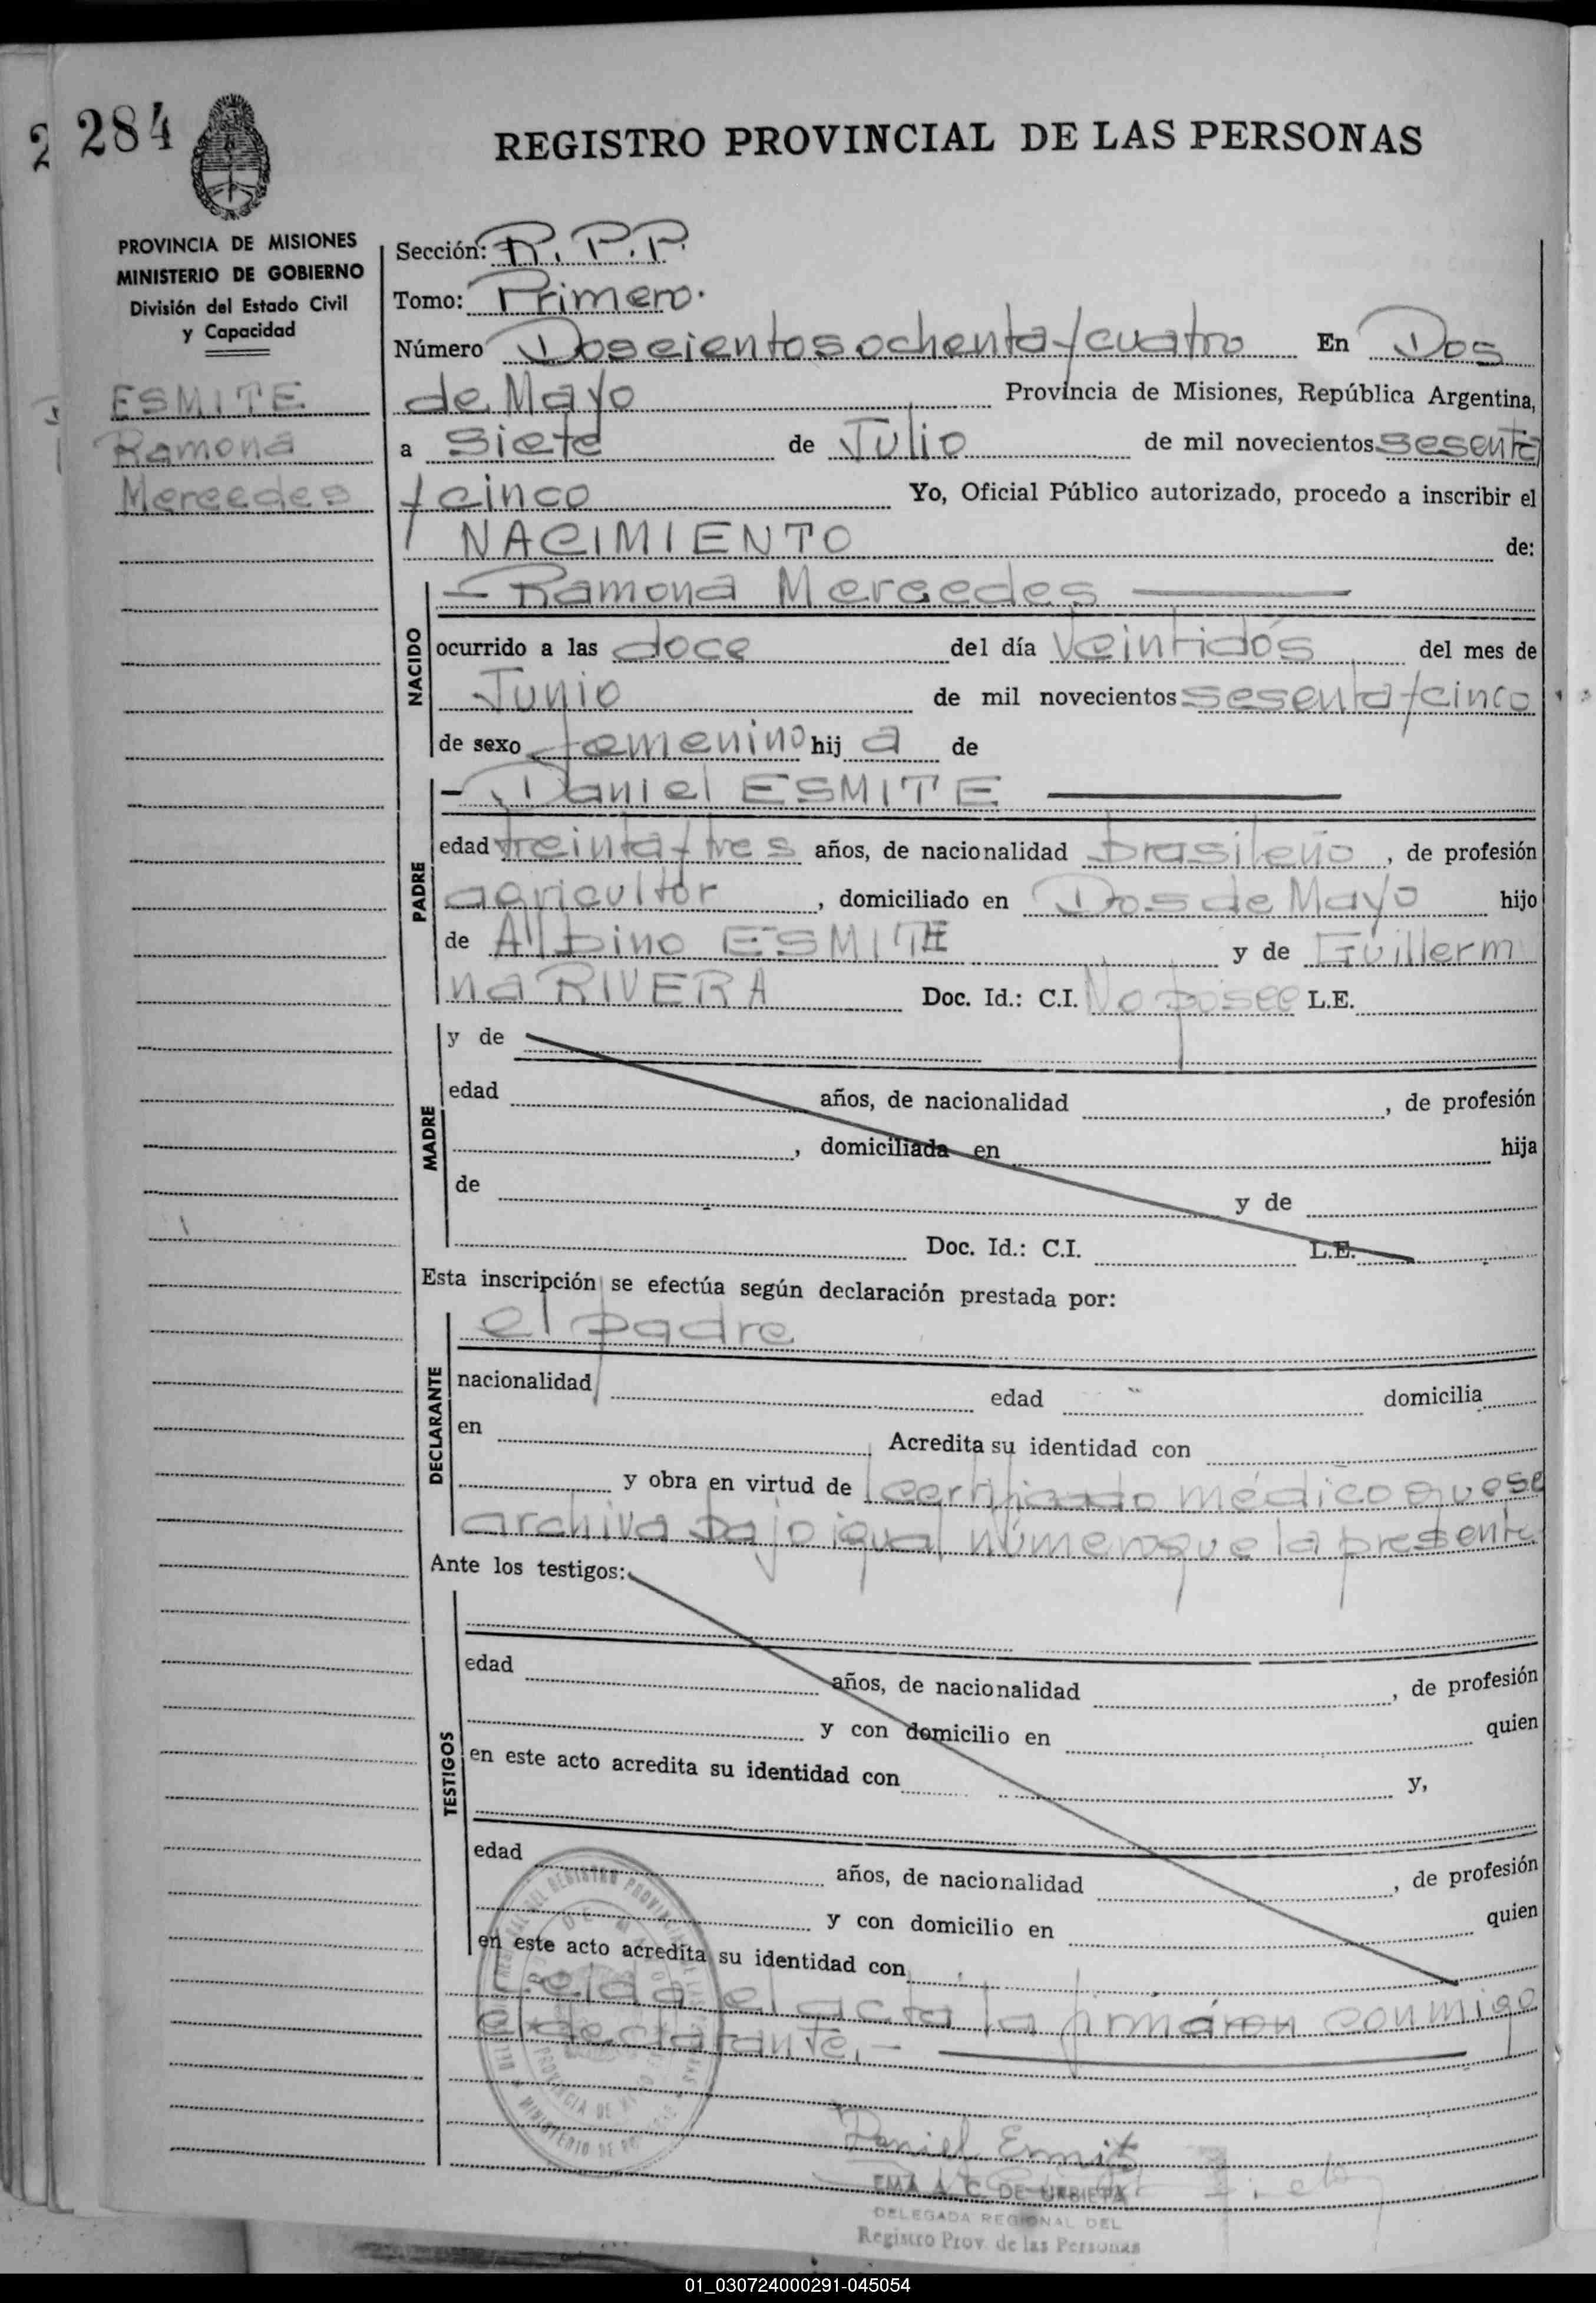 284
REGISTRO PROVINCIAL DE LAS PERSONAS
PROVINCIA DE MISIONES
MINISTERIO DE GOBIERNO
División del Estado Civil
y Capacidad
ESMITE
Ramona
Mercedes
Sección: R. P. P.
Tomo: Primero.
Número Doscientos ochenta y cuatro En Dos
de Mayo Provincia de Misiones, República Argentina,
a siete de Julio de mil novecientos sesenta
y cinco Yo, Oficial Público autorizado, procedo a inscribir el
NACIMIENTO de:
NACIDO
— Ramona Mercedes —
ocurrido a las doce del día veintidós del mes de
Junio de mil novecientos sesenta y cinco
de sexo femenino hij a de
PADRE
— Daniel ESMITE —
edad treinta y tres años, de nacionalidad brasileño, de profesión
agricultor, domiciliado en Dos de Mayo hijo
de Albino ESMITE y de Guillerm
na RIVERA Doc. Id.: C.I. No posee L.E.
MADRE
y de
edad años, de nacionalidad , de profesión
, domiciliada en hija
de y de
Doc. Id.: C.I. L.E.
Esta inscripción se efectúa según declaración prestada por:
DECLARANTE
el padre
nacionalidad edad domicilia
en Acredita su identidad con
y obra en virtud de certificado médico que se
archiva bajo igual número que la presente
Ante los testigos:
TESTIGOS
edad años, de nacionalidad , de profesión
y con domicilio en quien
en este acto acredita su identidad con y,
edad años, de nacionalidad , de profesión
y con domicilio en quien
en este acto acredita su identidad con
Leida el acta la firmáron conmigo
el declarante.—
Daniel Esmite
EMA A. C. DE URBIETA
DELEGADA REGIONAL DEL
Registro Prov. de las Personas
01_030724000291-045054